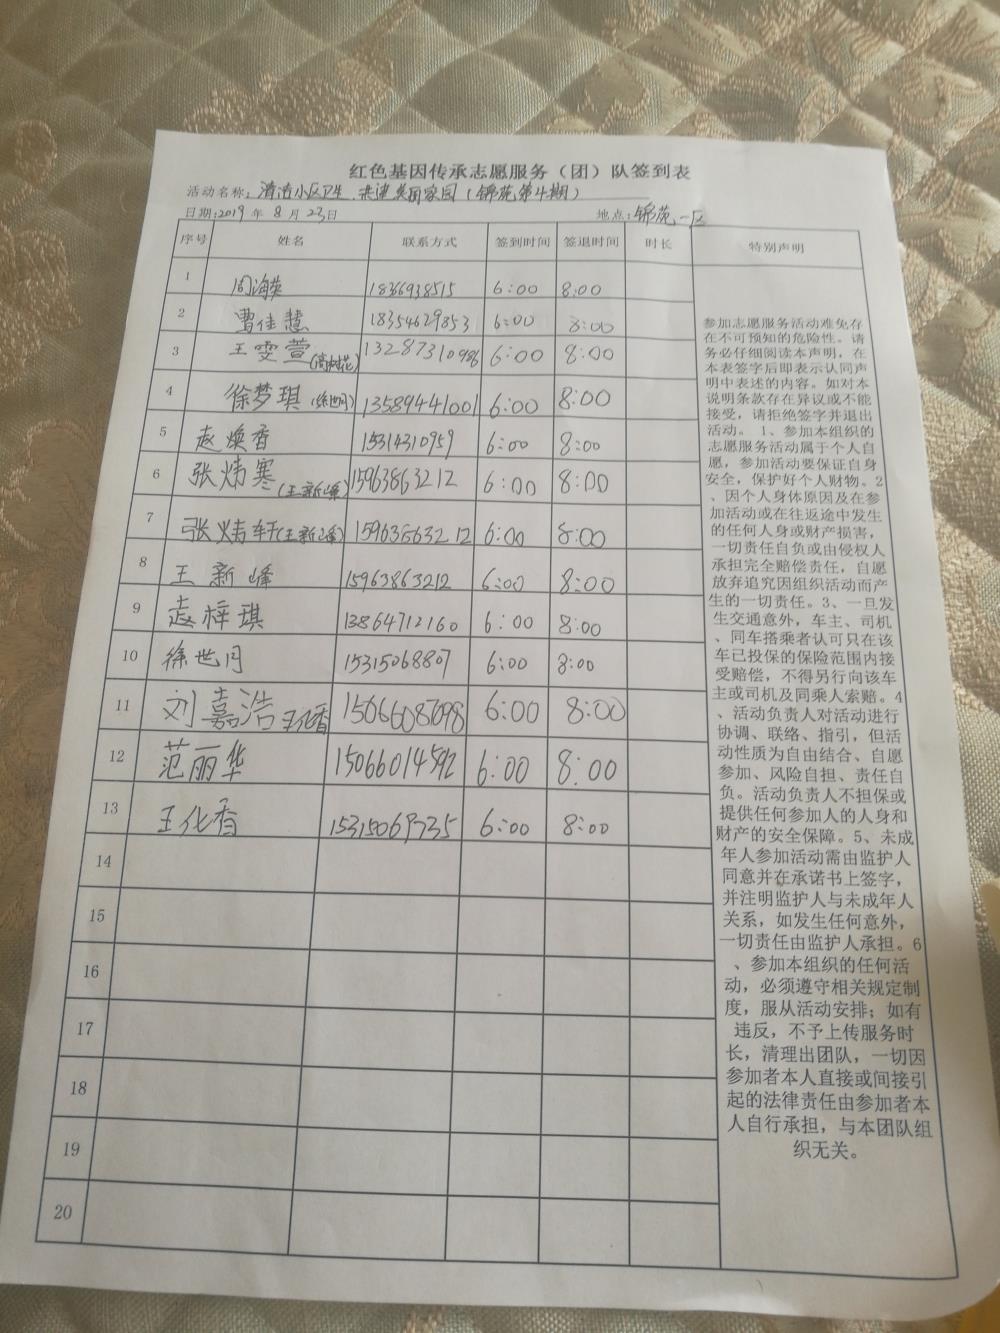 红色基因传承志愿服务（团）队签到表
活动名称：清洁小区卫生,共建美丽家园（锦苑第十期）
日期:2019年8月23日 地点:锦苑一区
序号 姓名 联系方式 签到时间 签退时间 时长 特别声明
1 周海英 18366938515 6:00 8:00
2 曹佳慧 18354629853 6:00 8:00
3 王雯萱 13287310986 6:00 8:00
4 徐梦琪(徐世月) 13589441001 6:00 8:00
5 赵焕香 15314310959 6:00 8:00
6 张炜寒(王新峰) 15963863212 6:00 8:00
7 张炜轩(王新峰) 15963863212 6:00 8:00
8 王新峰 15963863212 6:00 8:00
9 赵梓琪 13864712160 6:00 8:00
10 徐世月 15315068807 6:00 8:00
11 刘嘉浩 王化香 15066087098 6:00 8:00
12 范丽华 15066014592 6:00 8:00
13 王化香 15315069735 6:00 8:00
14
15
16
17
18
19
20
参加志愿服务活动难免存
在不可预知的危险性。请
务必仔细阅读本声明，在
本表签字后即表示认同声
明中表述的内容。如对本
说明条款存在异议或不能
接受，请拒绝签字并退出
活动。 1、参加本组织的
志愿服务活动属于个人自
愿，参加活动要保证自身
安全，保护好个人财物。2
、因个人身体原因及在参
加活动或在往返途中发生
的任何人身或财产损害，
一切责任自负或由侵权人
承担完全赔偿责任，自愿
放弃追究因组织活动而产
生的一切责任。3、一旦发
生交通意外，车主、司机
、同车搭乘者认可只在该
车已投保的保险范围内接
受赔偿，不得另行向该车
主或司机及同乘人索赔。4
、活动负责人对活动进行
协调、联络、指引，但活
动性质为自由结合、自愿
参加、风险自担、责任自
负。活动负责人不担保或
提供任何参加人的人身和
财产的安全保障。5、未成
年人参加活动需由监护人
同意并在承诺书上签字，
并注明监护人与未成年人
关系，如发生任何意外，
一切责任由监护人承担。6
、参加本组织的任何活
动，必须遵守相关规定制
度，服从活动安排；如有
违反，不予上传服务时
长，清理出团队，一切因
参加者本人直接或间接引
起的法律责任由参加者本
人自行承担，与本团队组
织无关。